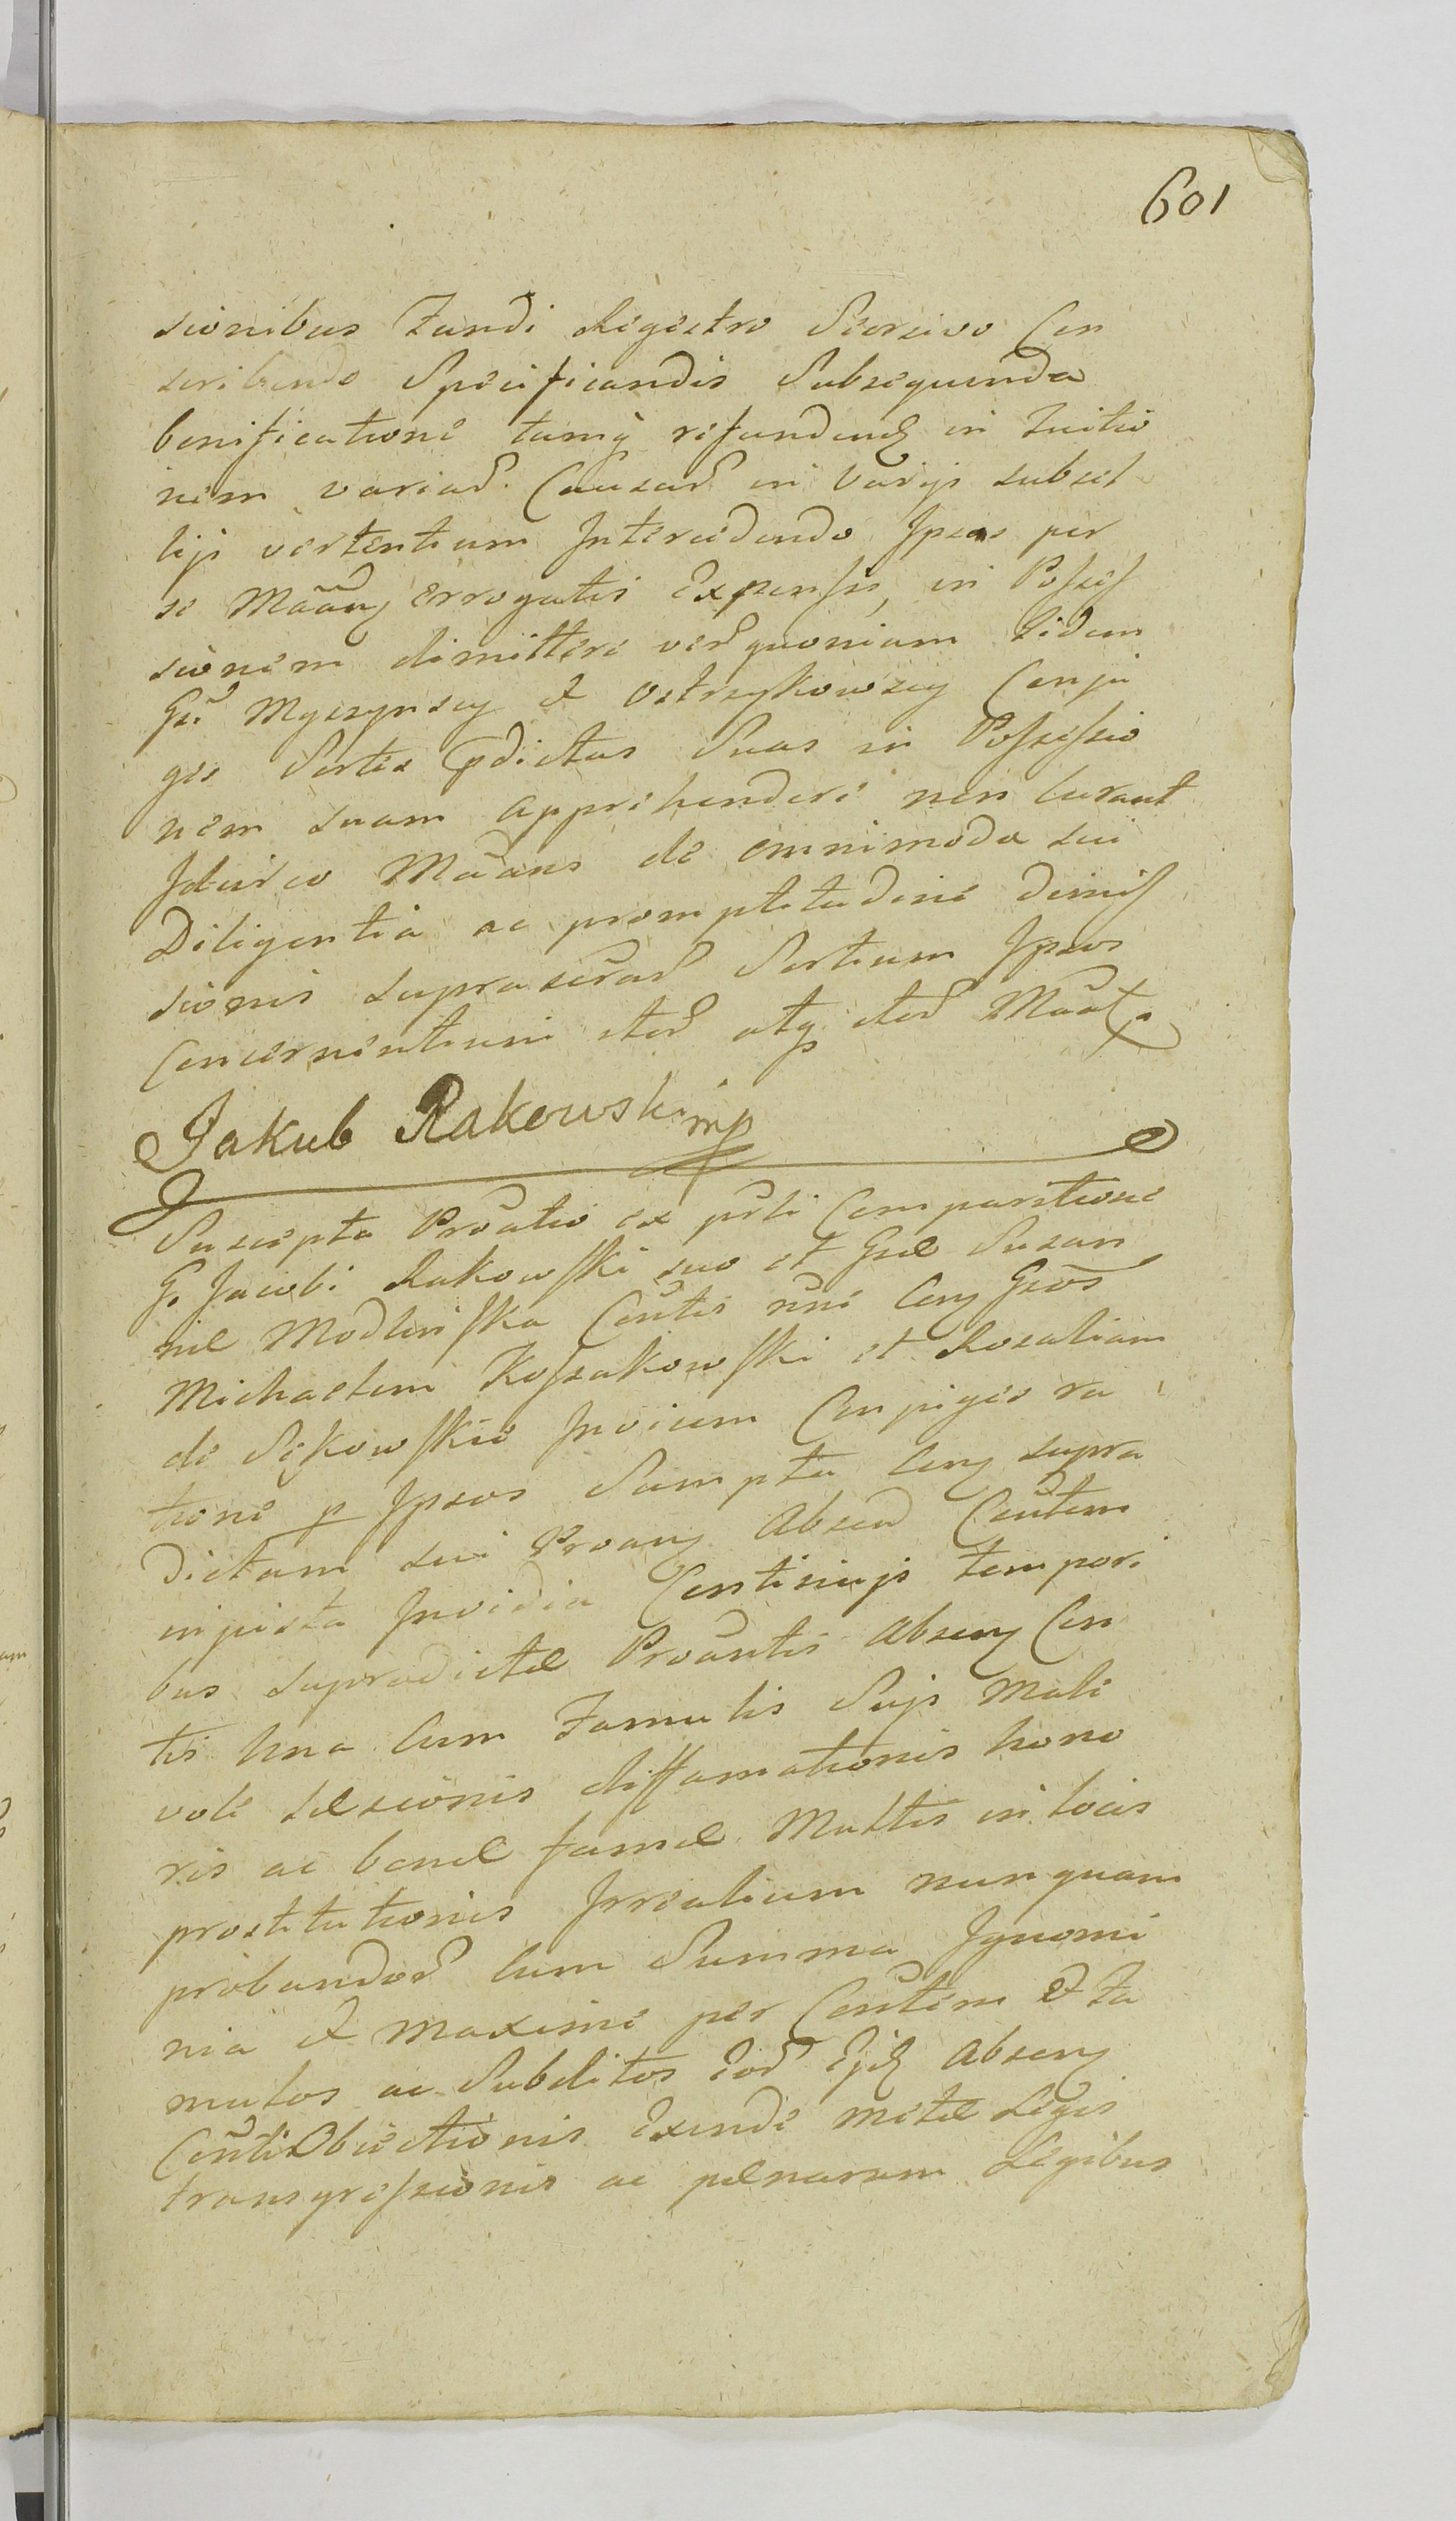 601
sionibus Fundi Regestro Seorsivo Con
scribendo Specificandis Subsequenda
bonificatione tamq̃ refundend in Tuitio
nem variar. Causar in Varijs subsel
lijs vertentium Intercedendo Ipsas per
se Mãñ errogatis Expensis, in Posses
sionem dimittere ver quoniam Iidem
Gsi Myszynscy et Ostrzykowscy Conju
ges Sortes pdictas Suas in Possessio
nem suam apprehendere non curant
Idcirco Mãans de omnimoda sui
Diligentia ac promptitudine dimis
sionis suprascrar Sortium Ipsos
Concernentium iter atq iter Mãat.
Jakub Rakowski mp
Suscepta Prõatio ex psti Comparitione
G. Jacobi Rakowski suo et Gsæ Susan
næ Modlinska Contis nñe Cong Gsos
Michaelem Kossakowski et Rosaliam
de Sikowskie Invicem Conjuges ra
tione p Ipsos Sumpta Cong supra
dictam sui Proang Absend Contem
injusta Invidia Continujs tempori
bus supradictæ Proantis absen Con
tis Una Cum Famulis Sujs Male
vole læsionis diffamationis hono
ris ac bonæ famæ Multis in locis
prostitutionis Irrealium nunquam
probandor Cum Summa Ignomi
nia et maxime per Contem et Fa
mulos ac Subditos Eor Ejd absen
Conti Obiectionis Exinde metæ Legis
transgressionis ac pænarum Legibus